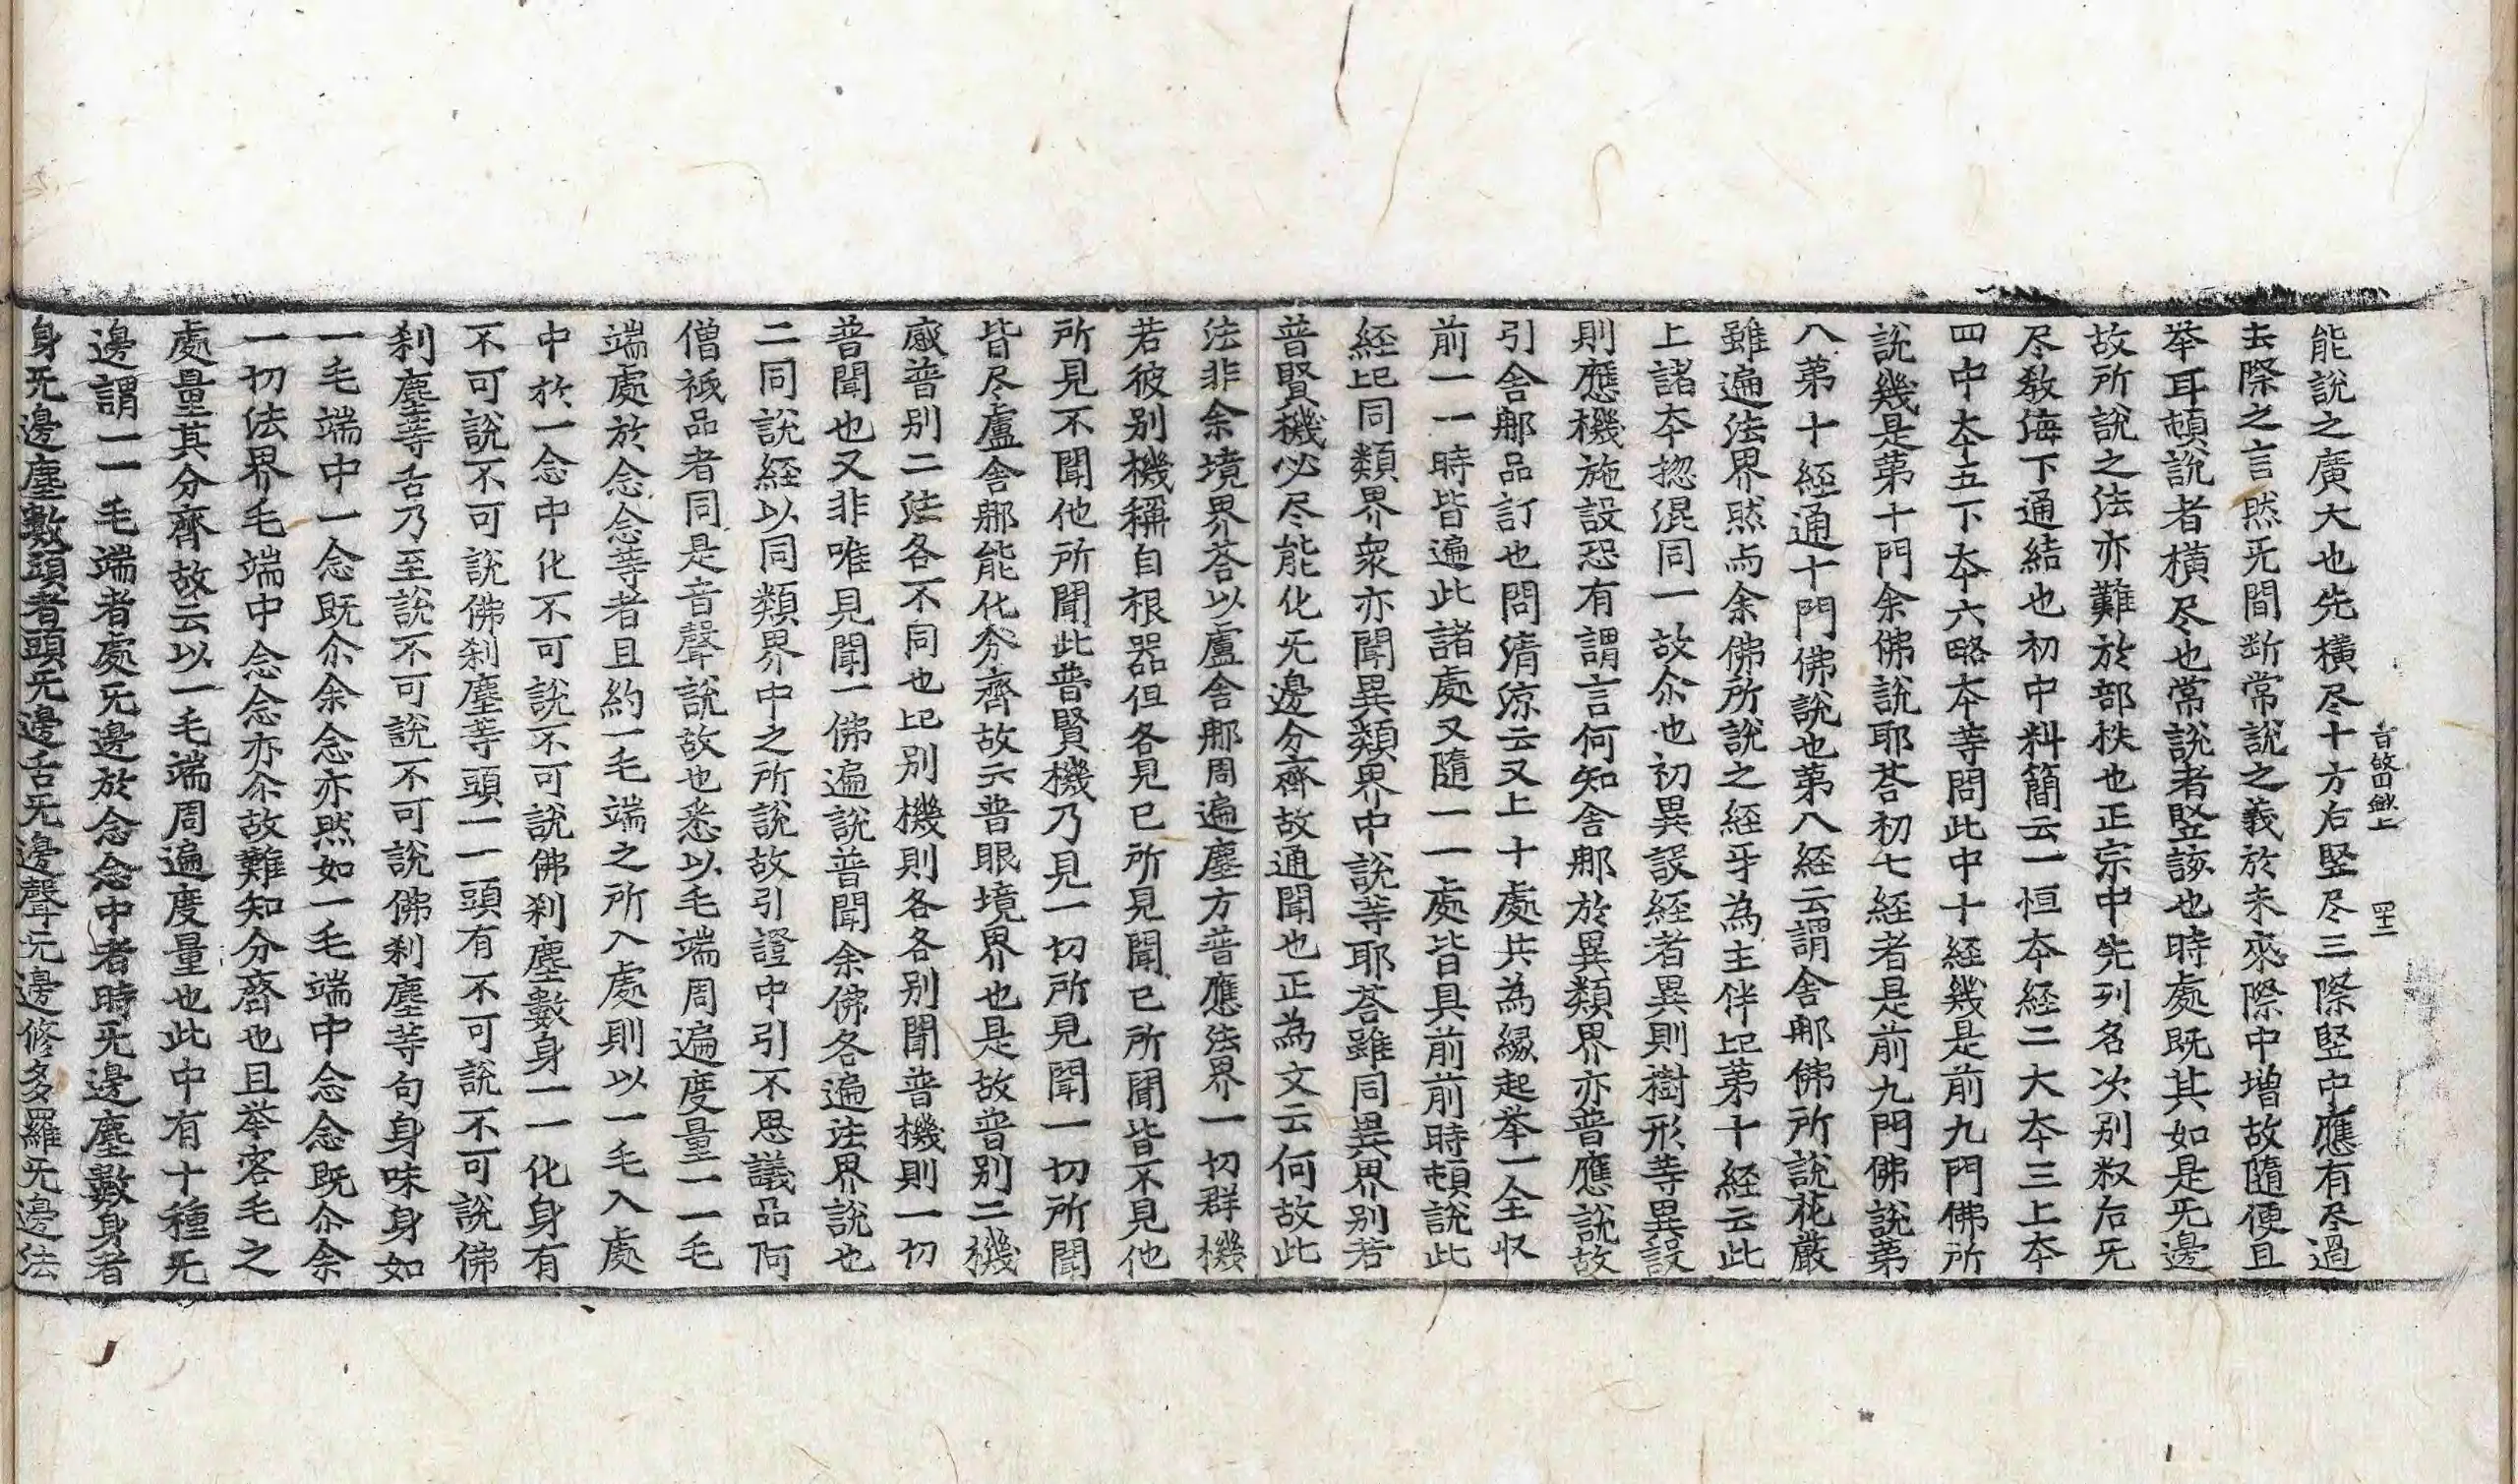 旨故四𨥧上 四十二
能說之廣大也先橫尽十方右竪尽三際竪中應有尽過
去際之言然旡間断常說之義於未來際中增故隨便且
举耳頓說者橫尽也常說者竪該也時處既其如是旡邊
故所說之法亦難於部帙也正宗中先列名次別叙后旡
尽教海下通結也初中料簡云一恒夲経二大夲三上夲
四中夲五下夲六略夲等問此中十経幾是前九門佛所
說幾是苐十門余佛說耶荅初七経者是前九門佛說苐
八苐十経通十門佛說也苐八経云謂舍那佛所說花嚴
雖遍法界然与余佛所說之経牙為主伴㠯苐十経云此
上諸夲揔混同一故尒也初異設経者異則樹形等異設
則應機施設恐有謂言何知舍那於異類界亦普應說故
引舍那品訂也問清凉云又上十處共為緣起举一全収
前一一時皆遍此諸處又隨一一處皆具前前時頓說此
経㠯同類界衆亦聞異類界中說等耶荅雖同異界別若
普賢機必尽能化旡邊分齊故通聞也正為文云何故此
法非余境界荅以盧舍那周遍塵方普應法界一切群機
若彼別機稱自根器但各見已所見聞已所聞皆不見他
所見不聞他所聞此普賢機乃見一切所見聞一切所聞
皆尽盧舍那能化分齊故云普眼境界也是故普別二機
感普別二法各不同也㠯別機則各各別聞普機則一切
普聞也又非唯見聞一佛遍說普聞余佛各遍法界說也
二同說経以同類界中之所說故引證中引不思議品阿
僧祇品者同是音聲說故也悉以毛端周遍度量一一毛
端處於念念等者且約一毛端之所入處則以一毛入處
中於一念中化不可說不可說佛刹塵數身一一化身有
不可說不可說佛刹塵等頭一一頭有不可說不可說佛
刹塵等舌乃至說不可說不可說佛刹塵等句身味身如
一毛端中一念既尒余念亦然如一毛端中念念既尒余
一切法界毛端中念念亦尒故難知分齊也且举容毛之
處量其分齊故云以一毛端周遍度量也此中有十種旡
邊謂一一毛端者處旡邊於念念中者時旡邊塵數身者
身旡邊塵數頭者頭旡邊舌旡邊聲旡邊修多羅旡邊法